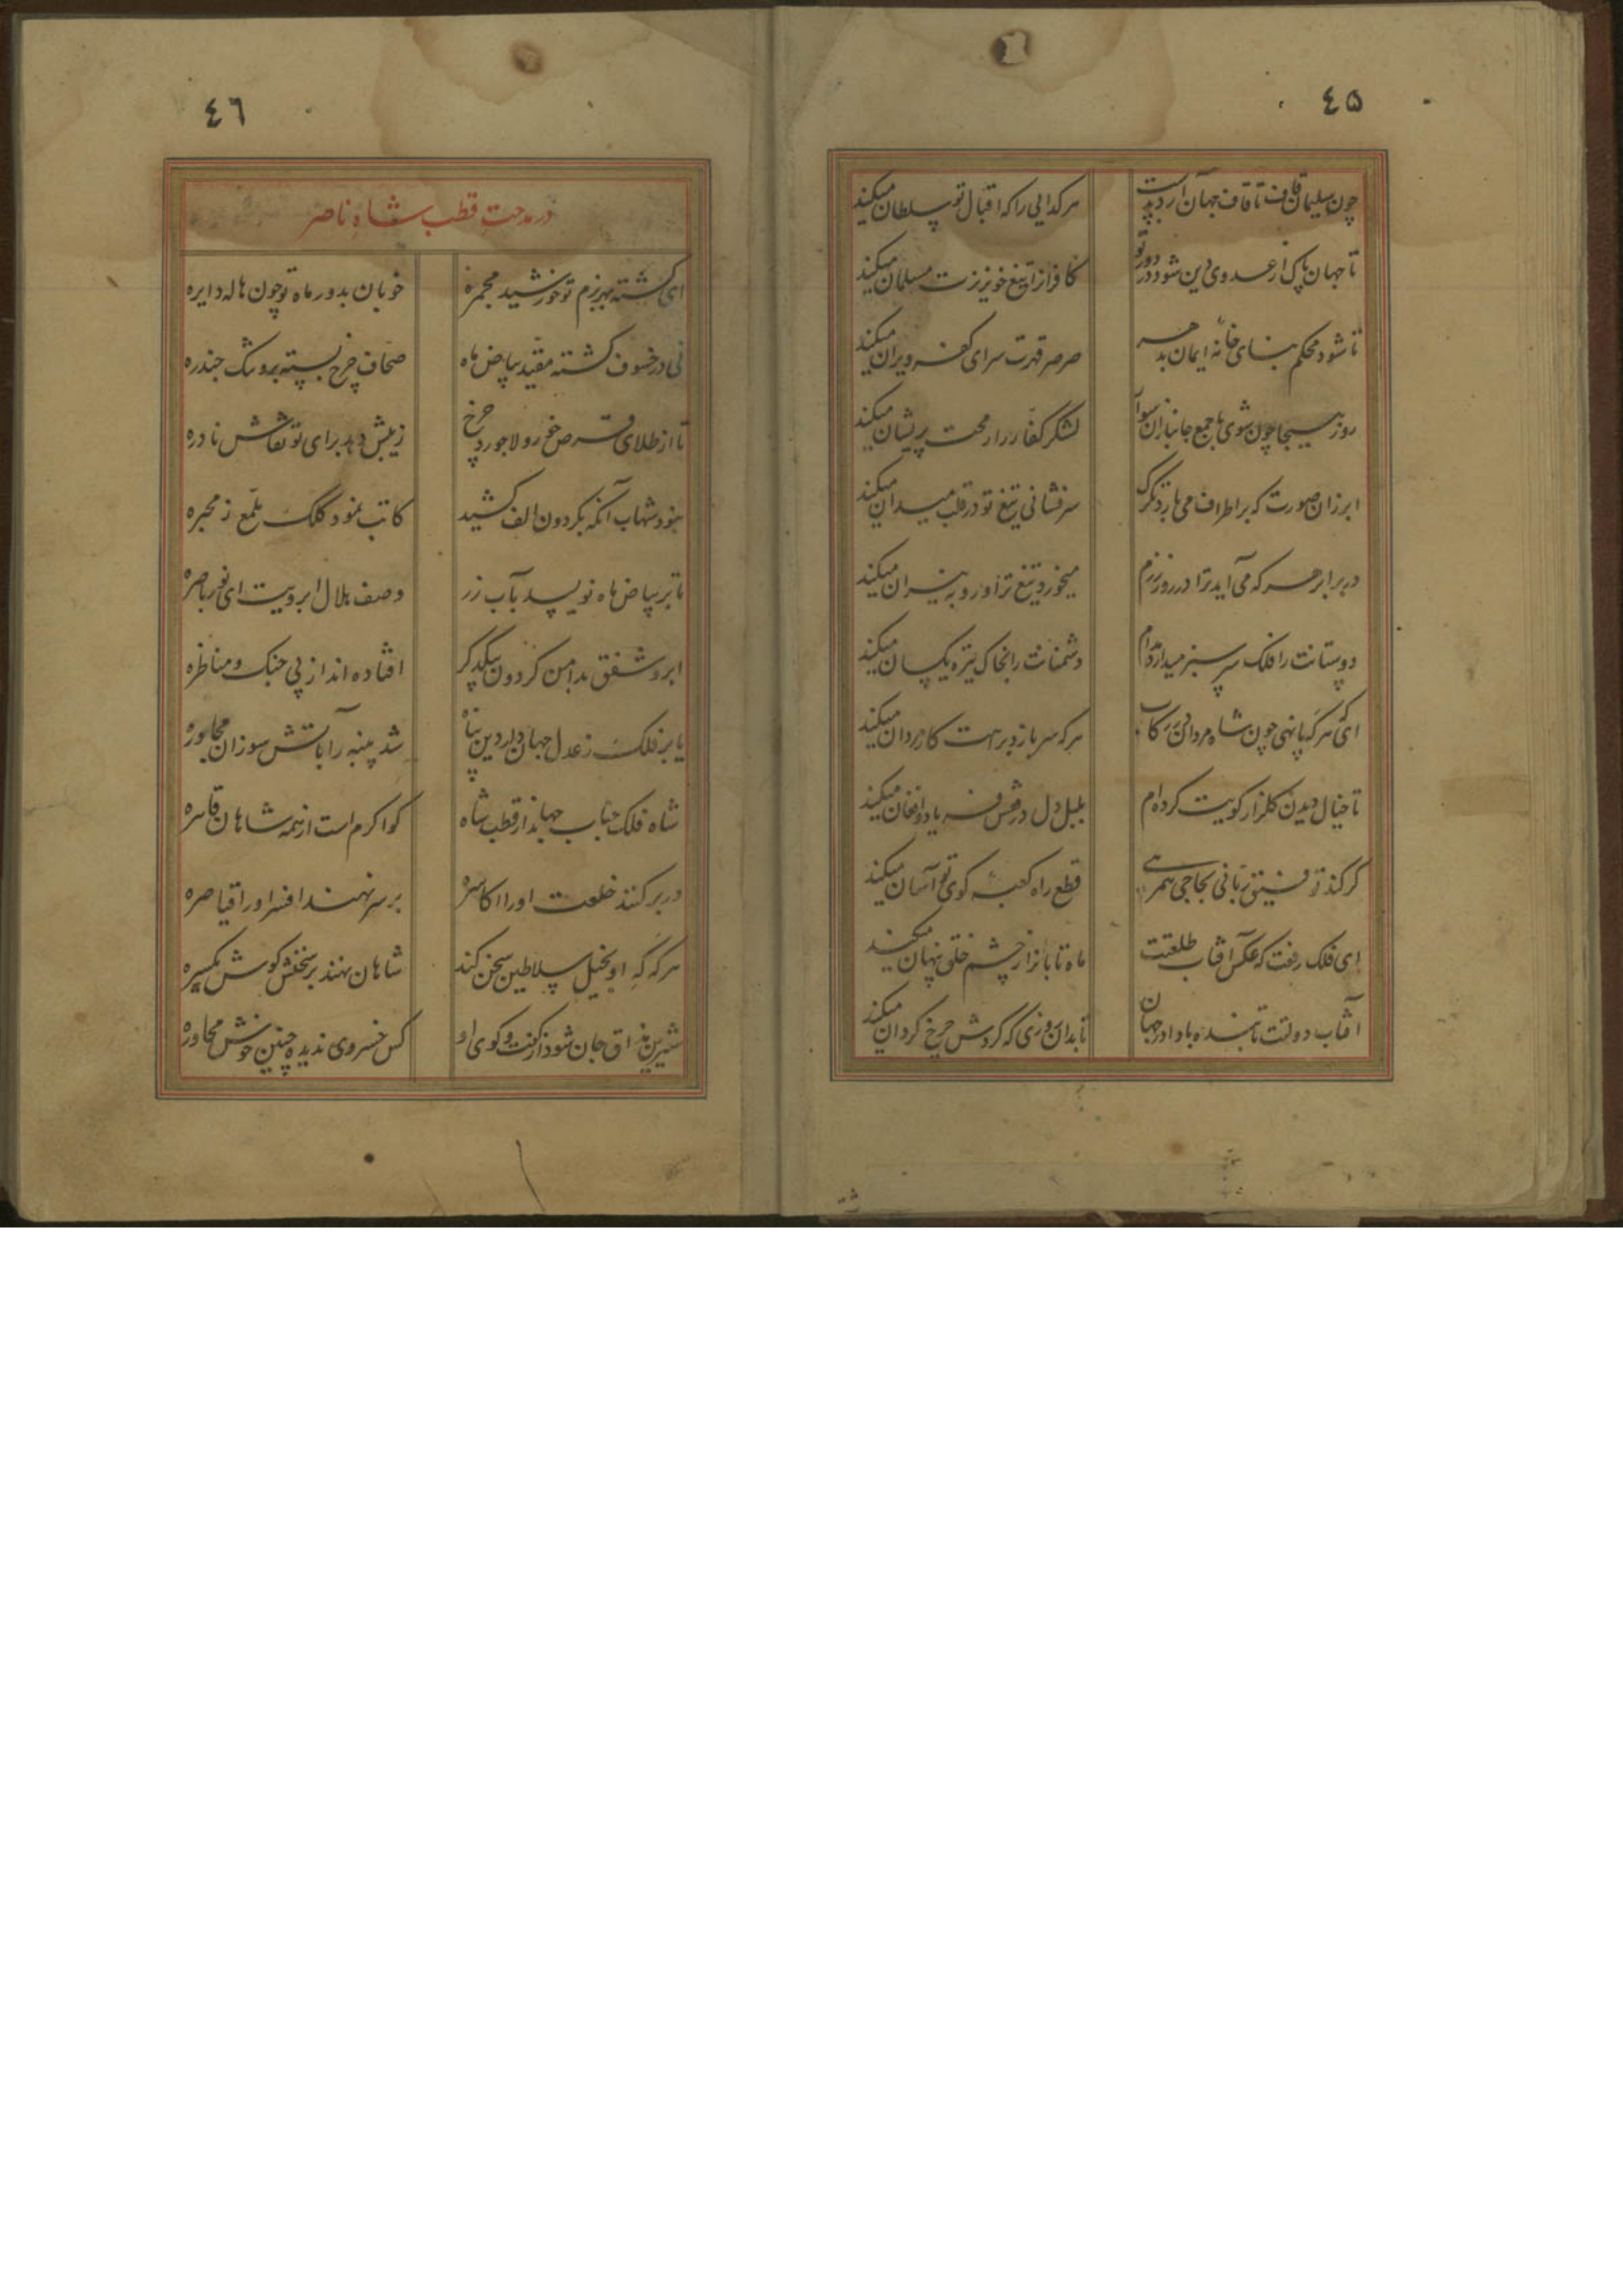 ٤۵
چون سلیمان قاف تا قاف جهان آرد بدست
هر کدایی را که اقبال تو سلطان میکند
تا جهان پاک از عدوی دین شود در دور تو
کافرانرا تیغ خونریزت مسلمان میکند
تا شود محکم بنای خانه ایمان بدهر
صرصر قهرت سرای کفر ویران میکند
روز هیجا چون شوی با جمع جانبازان سوار
لشکر کفار را رمحت پریشان میکند
ابر زان صورت که بر اطراف می بارد تکرک
سرفشانی تیغ تو در قلب میدان میکند
در برابر هر که می آید ترا در روز رزم
میخورد تیغ ترا و رو به نیران میکند
دوستانت را فلک سرسبز میدارد مدام
دشمنانت را بخاک تیره یکسان میکند
ای که هر که پا نهی چون شاه مردان در رکاب
هر که سر بازد براهت کار مردان میکند
تا خیال دیدن کلزار کویت کرده ام
بلبل دل در قفس فریاد و افغان میکند
کر کند توفیق ربانی بحاجی همرهی
قطع راه کعبه کوی تو آسان میکند
ای فلک رفعت که عکس آفتاب طلعتت
ماه تابانرا ز چشم خلق پنهان میکند
آفتاب دولتت تابنده بادا در جهان
تا بدان روزی که کردش چرخ کردان میکند
٤٦
در مدحت قطب شاه ناصر
ای کشته بهر بزم تو خورشید مجمره
خوبان بدور ماه تو چون هاله دایره
نی در خسوف کشته مقید بیاض ماه
صحاف چرخ بسته برو شک جندره
تا از طلای قرص خور و لاجورد چرخ
زیبش دهد برای تو نقاش نادره
نبود شهاب آنکه بکردون الف کشید
کاتب نمود کلک ملمع ز محبره
تا بر بیاض ماه نویسد بآب زر
وصف هلال ابرویت ای نور باصره
ابر و شفق بدامن کردون بیکدکر
افتاده اند از پی جنک و مناظره
یا بر فلک ز عدل جهاندار دین پناه
شد پنبه را بآتش سوزان مجاوره
شاه فلک جناب جهاندار قطب شاه
کو اکرم است از همه شاهان قاسره
در بر کنند خلعت او را اکاسره
بر سر نهند افسر او را قیاصره
هر که که او بخیل سلاطین سخن کند
شاهان نهند بر سخنش کوش یکسره
شیرین مذاق جان شود از گفت و کوی او
کس خسروی ندیده چنین خوش محاوره